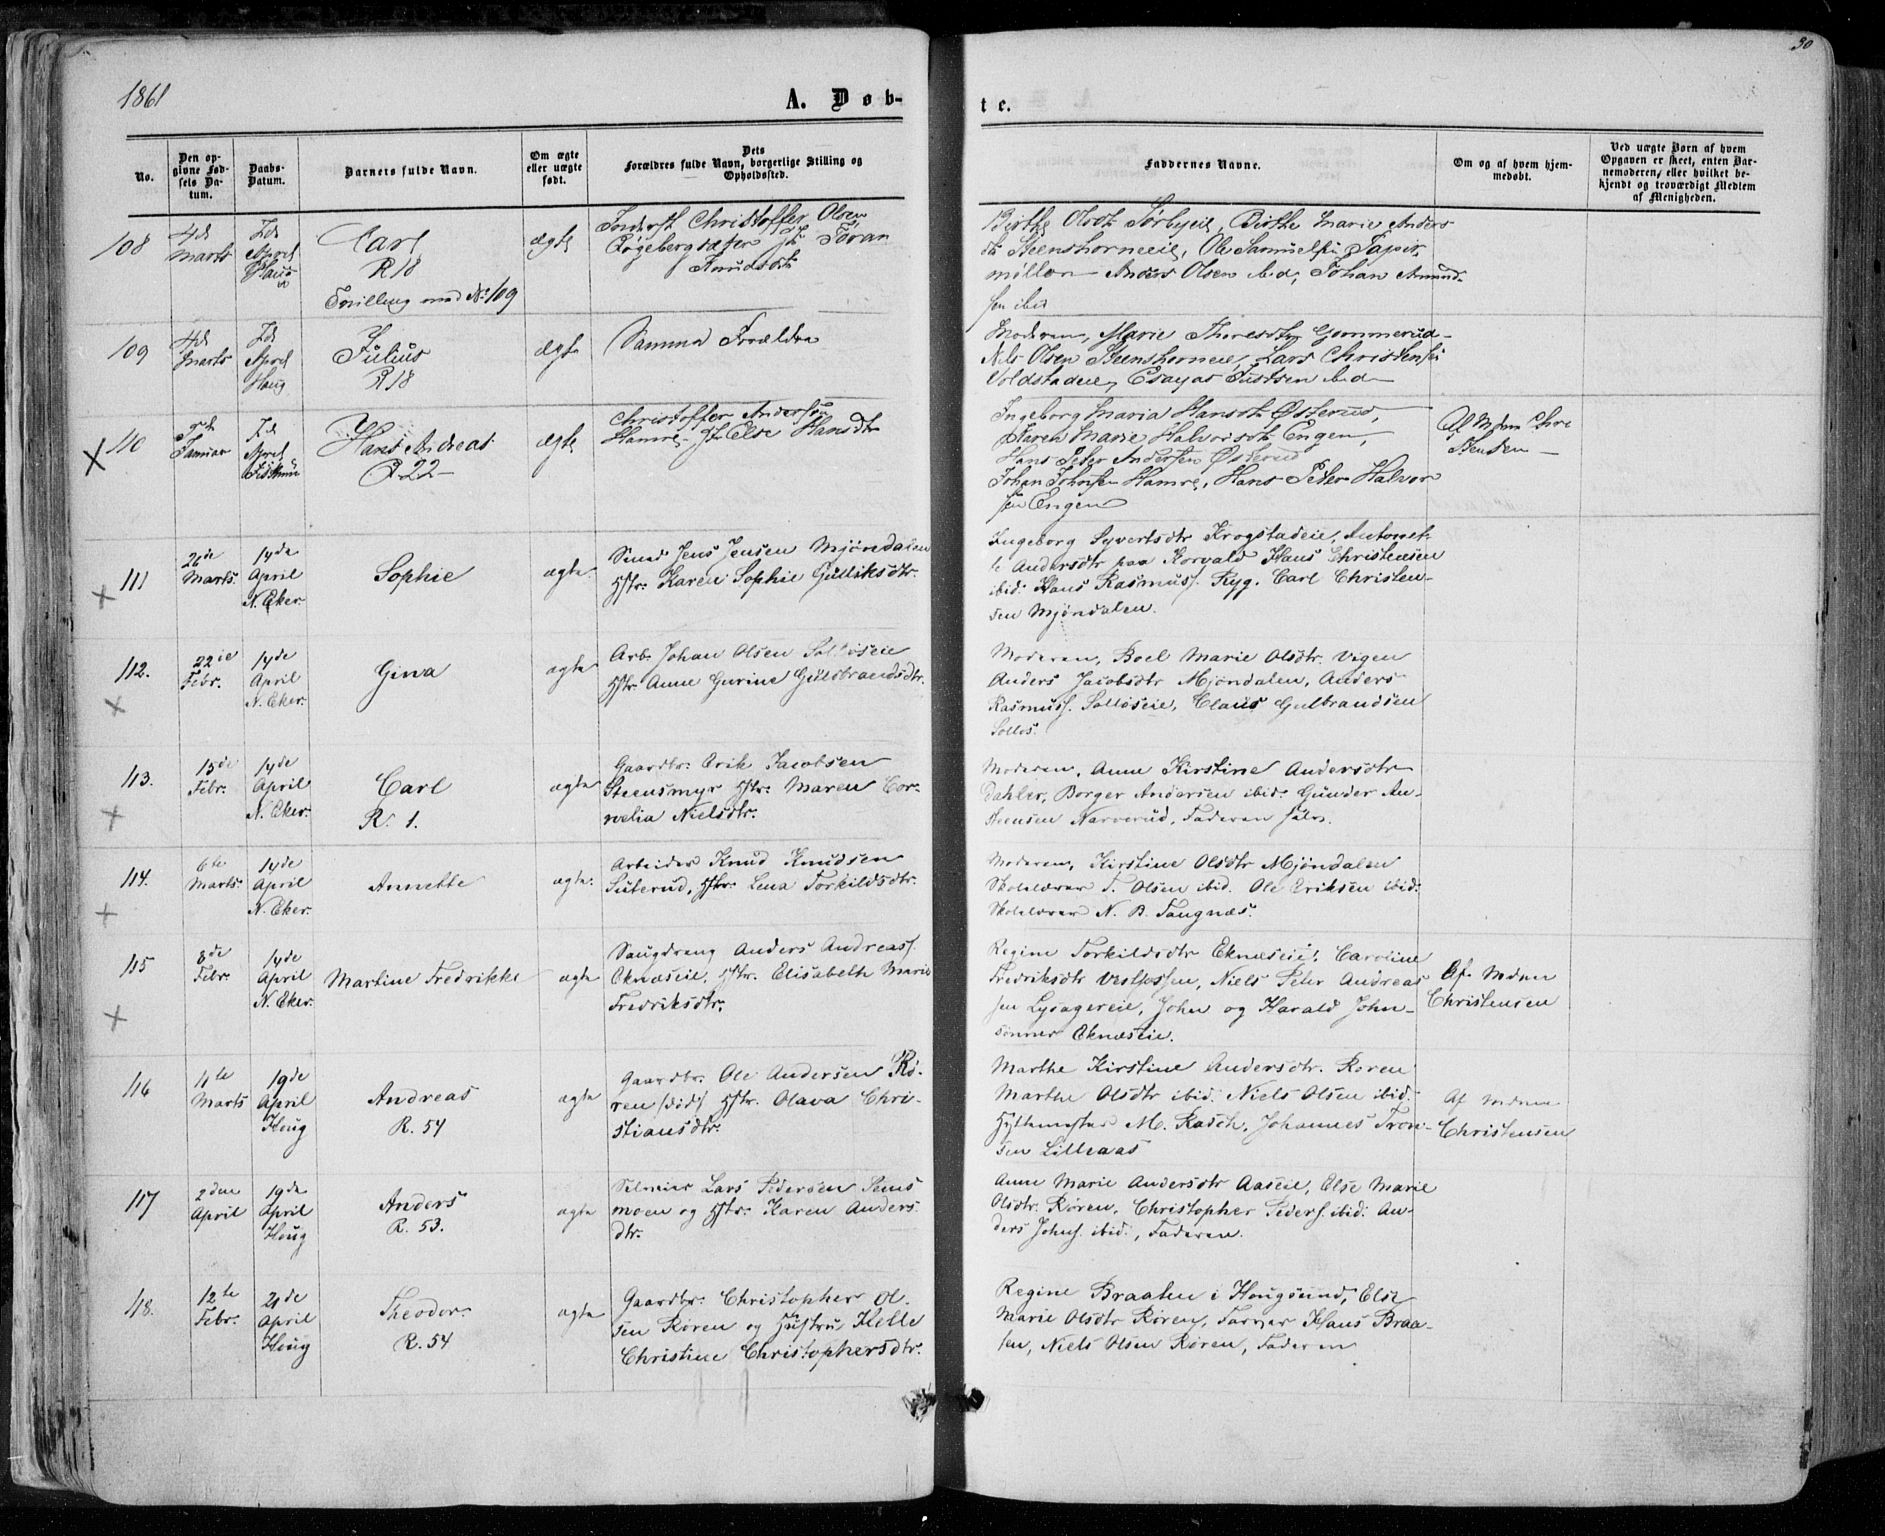 1861
30
A. Døb-
te.
No.
Den op-
givne Fød-
sels Da-
tum.
Daabs-
Datum.
Barnets fulde Navn.
Om ægte
eller uægte
født.
Dets
Forældres fulde Navn, borgerlige Stilling og
Opholdssted.
Faddernes Navne.
Om og af hvem hjem-
medøbt.
Ved uægte Børn af hvem
Opgaven er skeet, enten Bar-
nemoderen, eller hvilket be-
kjendt og troværdigt Medlem
af Menigheden.
108
4de
Marts
April
Carl
R 18
Tvilling med No 109
ægte
Christoffer Olsen
Knudsdtr
Birthe Olsdtr Sørbyeie, Birthe Marie Anders
dtr Steenshorneeie, Ole Samuels. Papir
møllen Anders Olsen ibid, Johan Amund-
sen ibid
109
4de
Marts
April
Houg
Julius
R 18
ægte
Samme Forældre
Moderen, Marie Gommerud
Nils Olsen Steenshorneeie, Lars Christens.
Voldstadeie, Esayas Justsen ibid
110
Januar
April
Fiskum
Hans Andreas
R 22
ægte
Christoffer Andersen
Hamre Else Hansdtr
Ingeborg Maria Hansdtr Østerud,
Karen Marie Halvorsdtr Engen,
Hans Peter Andersen Østerud
Johan Johnsen Hamre, Hans Peter Halvor
sen Engen
Af Mdm Chri
stensen
111
26de
Marts
14de
April
N. Eker.
Sophie
ægte
Smed Jens Jensen Mjøndalen
Hstr. Karen Sophie Gulliksdtr.
Ingeborg Syvertsdtr Krogstadeie, Antonet-
te Andersdtr paa Korvald Hans Christensen
ibid. Hans Rasmuss. Ryg. Carl Christen-
sen Mjøndalen.
112.
22de
Febr.
14de
April
N. Eker.
Gina
ægte
Arb. Johan Olsen Solløseie
Hstr. Anne Gurine Gulbrandsdtr.
Moderen, Boel Marie Olsdtr. Vigen
Anders Jacobsdtr Mjøndalen, Anders
Rasmuss. Solløseie, Claus Gulbrandsen
Solløs.
113.
15de
Febr.
14de
April
N. Eker.
Carl
R. 1.
ægte
Gaardbr. Erik Jacobsen
Steensmyr Hstr. Maren Cor-
nelia Nielsdtr.
Moderen, Anne Kirstine Andersdtr
Dahler, Borger Andersen ibid. Gunder An-
stensen Narverud, Faderen selv.
114.
6te
Marts
14de
April
N. Eker.
Annette
ægte.
Arbeider Knud Knudsen
Seterud, Hstr. Lena Torkildsdtr.
Moderen, Kirstine Olsdtr Mjøndalen
Skolelærer T. Olsen ibid. Ole Eriksen ibid.
Skolelærer N. B. Tangnæs.
115
8de
Febr.
14de
April
N. Eker.
Martine Fredrikke
ægte
Saugdreng Anders Andreass.
Eknæseie, Hstr. Elisabeth Marie
Fredriksdtr.
Regine Torkildsdtr Eknæseie, Caroline
Fredriksdtr Vestfossen, Niels Peter Andreas
sen Lysagereie, John og Harald John-
sønner Eknæseie.
Af Mdme
Christensen
116
11te
Marts
19de
April
Houg
Andreas
R. 54
ægte
Gaardbr. Ole Andersen Rø-
ren (død) Hstr. Olava Chri-
stiansdtr.
Marthe Kirstine Andersdtr. Røren
Marthe Olsdtr ibid. Niels Olsen ibid.
Hyttemester M. Rasch, Johannes Tron-
sen Lilleaas
Af Mdme
Christensen
117
2den
April
19de
April
Houg
Anders
R. 53.
ægte
Selveier Lars Pedersen Sems
moen og Hstr. Karen Anders
dtr.
Anne Marie Andersdtr Aaseie, Else Marie
Olsdtr. Røren, Christopher Peders. ibid. An-
ders Johns. ibid., Faderen.
118.
12te
Febr.
21de
April
Houg
Theodor
R. 54
ægte
Gaardbr. Christopher Ol-
sen Røren og Hustru Helle
Christine Christophersdtr.
Regine Braaten i Hougsund, Else
Marie Olsdtr Røren, Farver Hans Braa-
ten, Niels Olsen Røren, Faderen